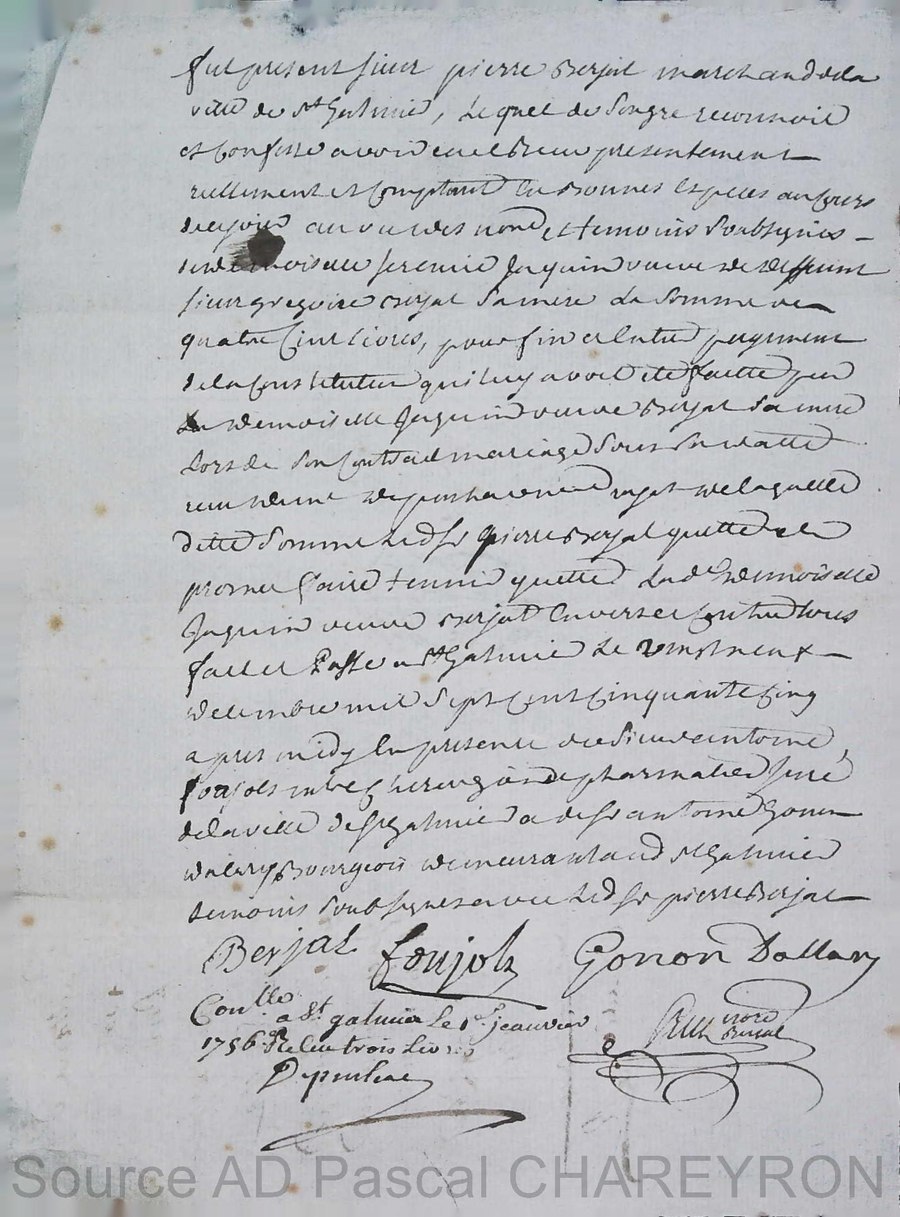 fut present sieur pierre Berjat marchand de la
ville de St Galmier, Lequel de son gre reconnoit
et Confesse avoir eu et Receu presentement
reellement et Comptant En Bonnes Especes au Cours
de ce jour au vu des nore et temoins Soubsignes
de demoiselle Jeremie Jaquin veuve de deffunt
sieur gregoire Berjat sa mere La somme de
quatre Cent Livres, pour fin et entier payement
de la Constitution qui luy avoit ete faitte par
La demoiselle Jaquin veuve Berjat Sa mere
Lors de son Contrat de mariage Sous Sa datte
receu de me de laquelle
ditte Somme Ledt Sr pierre Berjat quitte et
promet faire tenir quitte Lade demoiselle
Jaquin veuve Berjat Envers et Contre tous
fait et Passé a St Galmier Le vingt neuf
decembre mil Sept Cent Cinquante Cinq
apres midy En presence de Sieur antoine
foujols me Chirurgien pharmatien juré
de la ville de St Galmier & de Sr antoine Gonon
dalary Bourgeois demeurant aud St Galmier
temoins Soubsignes avec Ledt Sr pierre Berjat
Berjat foujols Gonon Dallary
Conllé a St galmier Le 1er jeanvier
1756 Releu trois Livres
nore Royal
Source AD Pascal CHAREYRON